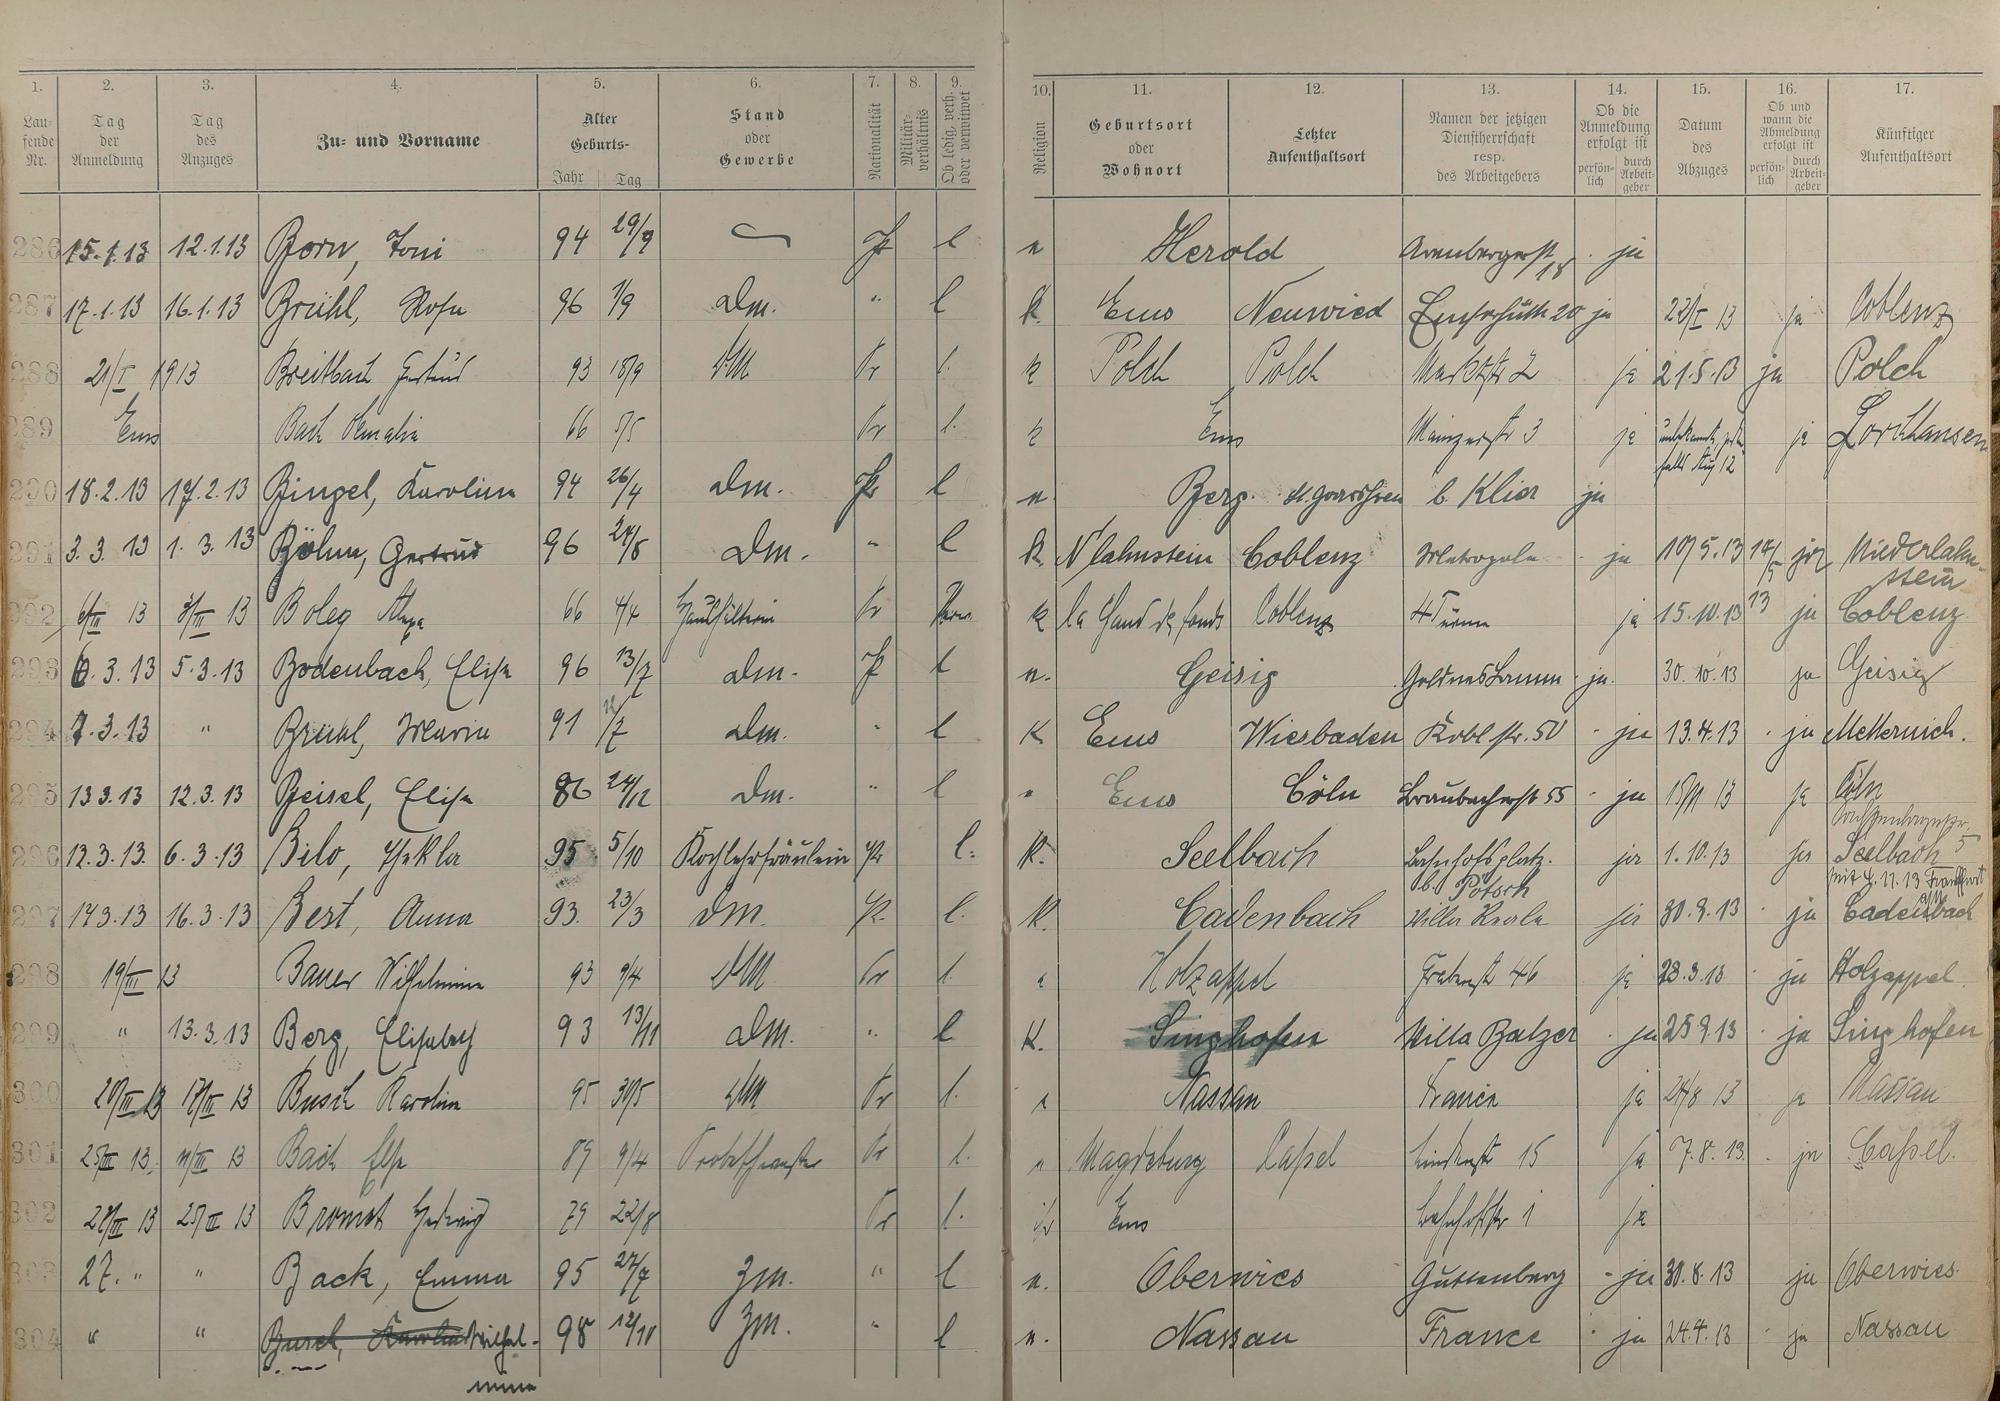 1. 2. 3. 4. 5. 6. 7. 8. 9. 10. 11. 12. 13. 14. 15. 16. 17.
Lau-fende Nr. Tag der Anmeldung Tag des Anzuges Zu- und Vorname Alter Geburts- Jahr Tag Stand oder Gewerbe Nationalität Militär-verhältnis Ob ledig, verh. oder verwitwet Religion Geburtsort oder Wohnort Letzter Aufenthaltsort Namen der jetzigen Dienstherrschaft resp. des Arbeitgebers Ob die Anmeldung erfolgt ist persön-lich durch Arbeit-geber Datum des Abzuges Ob und wann die Abmeldung erfolgt ist persön-lich durch Arbeit-geber Künftiger Aufenthaltsort
286 15.1.13 12.1.13 Born, Toni 94 29/9 Pr l e Herold Arenbergerst. 18 - ja
287 17.1.13 16.1.13 Brühl, Rosa 96 7/9 Dm. " l k. Ems Neuwied 20 ja 23/I 13 ja Coblenz
288 21/I 1913 Breitbach Gertrud 93 18/9 DM Pr l. k Polch Polch Marktstr 2 ja 21.5.13 ja Polch
289 Ems Bach Amalia 66 5/5 Pr l. k Ems Mainzerstr 3 ja unbekannt, falls Aug 12 ja Lorchhausen
290 18.2.13 17.2.13 Bingel, Karolina 94 26/4 Dm. Pr l e. Berg. b. Klier ja
291 3.3.13 1.3.13 Böhm, Gertrud 96 24/8 Dm. " l k. N'lahnstein Coblenz Metropole - ja 10/5.13 14/5 13 ja Niederlahn-stein
292 6/III 13 3/III 13 Boleg 66 4/4 Haushälterin Pr Verw. k la Coblenz 4 Türme ja 15.10.13 ja Coblenz
293 6.3.13 5.3.13 Bodenbach, Elise 96 13/7 Dm. Pr l e. Geisig Goldnes Lamm - ja. 30.10.13 ja Geisig
294 7.3.13 " Brühl, Maria 91 12/7 Dm. " l K. Ems Wiesbaden Kobl str. 50 - ja 13.4.13 - ja Metternich.
295 13.3.13 12.3.13 Beisel, Elise 86 24/12 Dm. " l " Ems Cöln Braubacherst 55 - ja 15/11 13 ja Cöln
296 12.3.13. 6.3.13 Bilo, Thekla 95 5/10 Kochlehrfräulein Pr l. K. Seelbach Bahnhofsplatz. b. Pötsch ja 1.10.13 ja Seelbach
seit 4.11.13 Frankfurt a/M
297 17.3.13 16.3.13 Best, Anna 93. 23/3 Dm. Pr. l. K. Cadenbach Villa ja 30.9.13 ja Cadenbach
298 19/III 13 Bauer Wilhelmine 93 9/4 DM Pr l. e Holzappel 46 ja 28.3.13 - ja Holzappel.
299 " 13.3.13 Berg, Elisabeth 93 13/11 Dm. " l K. Singhofen Villa Balzer - ja 25.9.13 - ja Singhofen
300 20/III 13 17/III 13 Busch Karolin 95 30/5 DM Pr l. e Nassau France ja 24/8 13 ja Nassau
301 25/III 13. 11/III 13 Bach Else 89 9/4 Pr l. e Magdeburg Cassel Lindenstr 15 ja 7.8.13. - ja Cassel.
302 28/III 13 25/III 13 Bromet Hedwig 79 22/8 Pr l. isr Ems Bahnhofstr 1 ja
303 27. " " Back, Emma 95 27/7 Zm. " l e. Oberwies Guttenberg - ja 30.8.13 ja Oberwies.
304 " " Busch, Karolin Wilhel-mina 98 12/11 Zm. " l e. Nassau France - ja 24.4.13 - ja Nassau